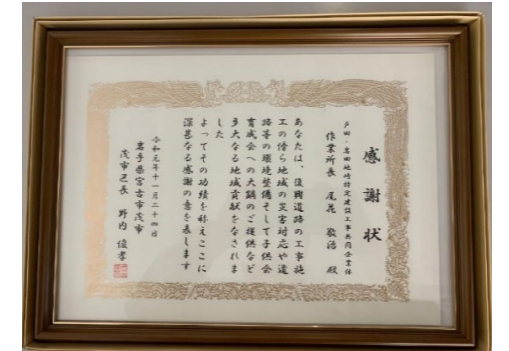 感謝状
戸田・岩田地崎特定建設工事共同企業体
作業所長 尾花 敬浩 殿
あなたは、復興道路の工事施
工の傍ら地域の災害対応や道
路等の環境整備そして子供会
育成会への太鼓のご提供など
多大なる地域貢献をなされま
した
よってその功績を称えここに
深甚なる感謝の意を表します
令和元年十一月二十四日
岩手県宮古市茂市
茂市区長 野内 俊孝